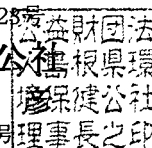 23号
公益財団法
公社
島根県環
彦
保健公社
号
理事長之印